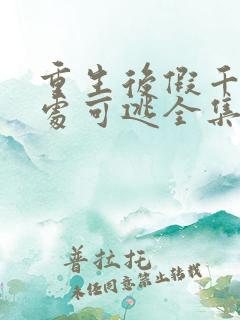 重生后假千
处可逃全集
普拉托
未经同意禁止转载